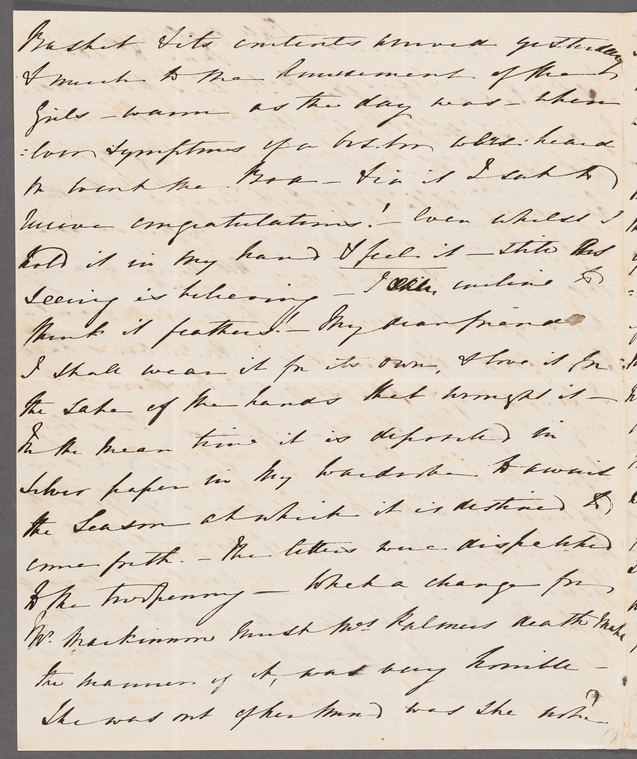 Basket & its contents arrived yesterday
& much to the amusement of the
Girls – warm as the day was – when
=ever symptoms of a visitor were heard
on went the Boa – & in it I sat to
receive congratulations! – Even whilst I
hold it in my hand & feel it – still as
Seeing is believing – I incline to
think it feathers! – My dear friend
I shall wear it for its own, & love it for
the sake of the hands that wrought it –
In the mean time it is deposited in
silver paper in my wardrobe to await
the Season at which it is destined to
come forth. – The letters were dispatched
to the twopenny – What a change for
Mr. Mackinnon must Mrs Palmers death make
the manner of it, was very horrible –
She was out of her mind was she not?